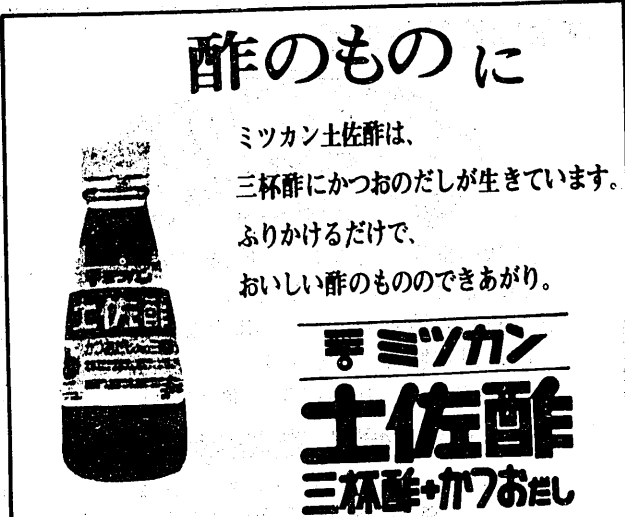 酢のものに
ミツカン土佐酢は、
三杯酢にかつおのだしが生きています。
ふりかけるだけで、
おいしい酢のもののできあがり。
ミツカン
土佐酢
三杯酢+かつおだし
ミツカン
土佐酢